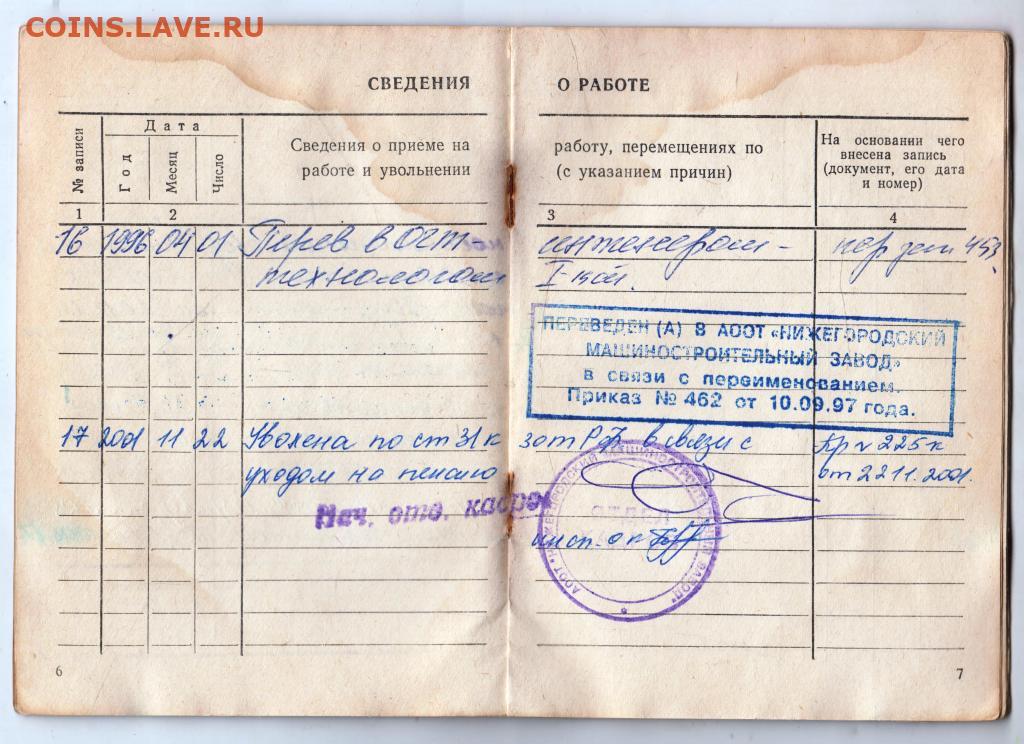 COINS.LAVE.RU
СВЕДЕНИЯ О РАБОТЕ
№ записи
Дата
Год
Месяц
Число
Сведения о приеме на работу, перемещениях по
работе и увольнении (с указанием причин)
На основании чего
внесена запись
(документ, его дата
и номер)
1 2 3 4
16 1996 04 01 Перев в ОГТ инженером-
технологом I-кат.
ПЕРЕВЕДЕН (А) В АООТ «НИЖЕГОРОДСКИЙ
МАШИНОСТРОИТЕЛЬНЫЙ ЗАВОД»
в связи с переименованием.
Приказ № 462 от 10.09.97 года.
17 2001 11 22 Уволена по ст 31 кзот РФ в связи с Пр N 225-к
уходом на пенсию от 22 11. 2001.
Нач. отд. кадров
инсп. о п
АООТ "НИЖЕГОРОДСКИЙ МАШИНОСТРОИТЕЛЬНЫЙ ЗАВОД"
ОТДЕЛ
6 7